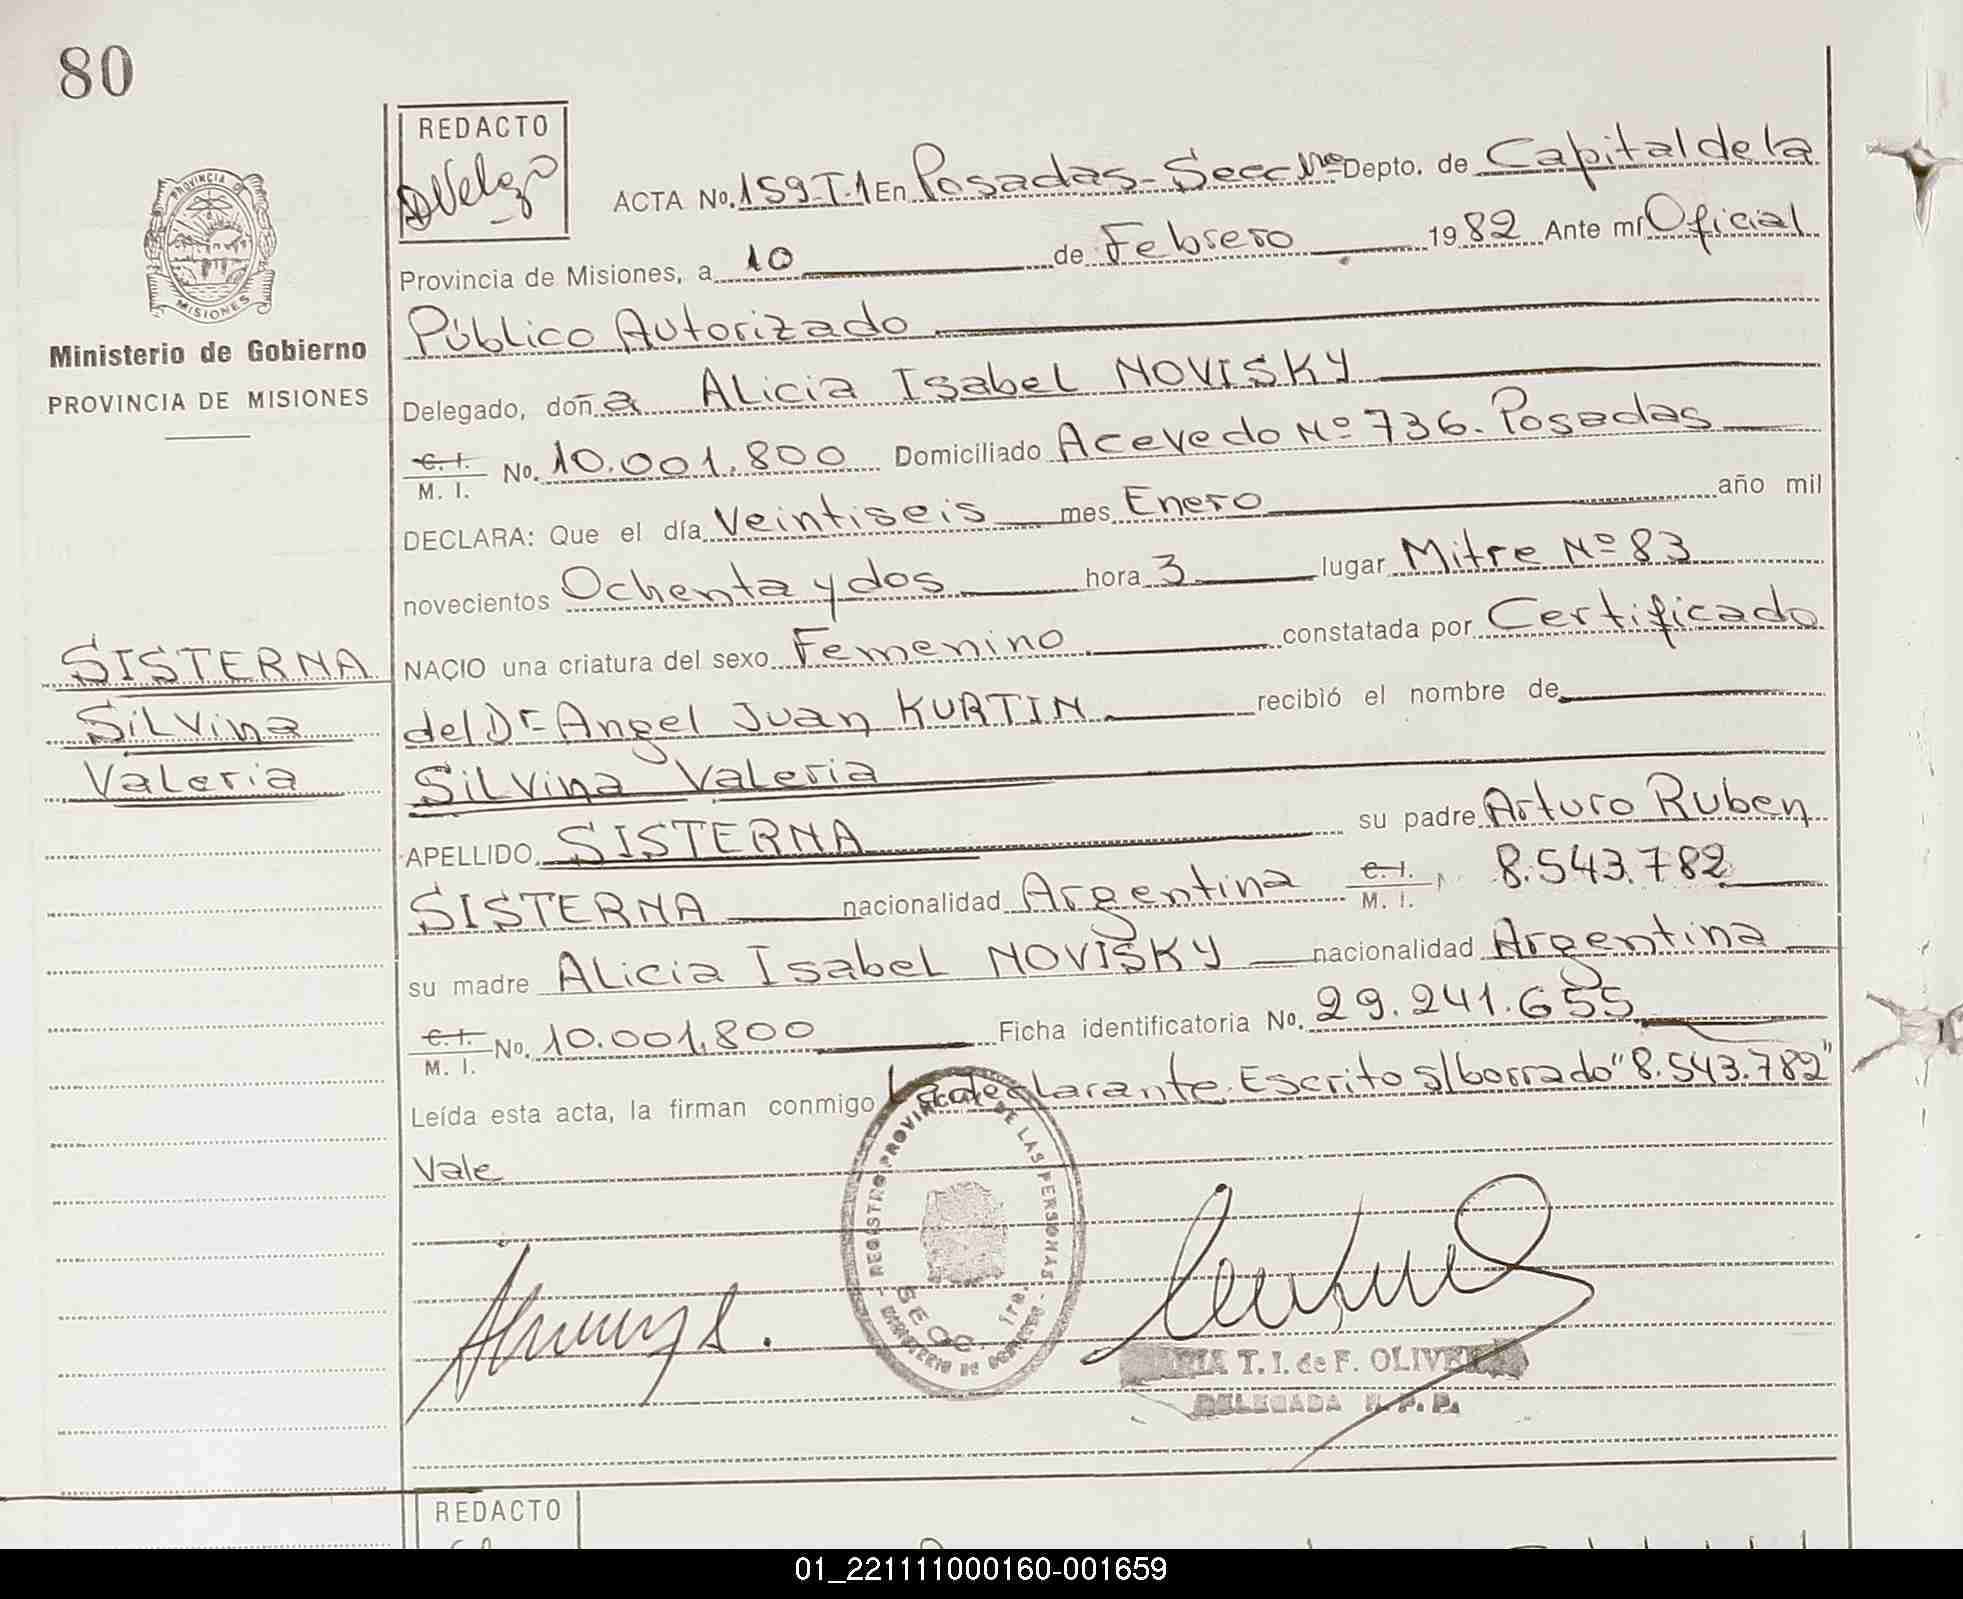 80
REDACTO
ACTA No. 159-T-1 En Posadas - Secc 1ra Depto. de Capital de la
Provincia de Misiones, a 10 de Febrero 1982 Ante mí Oficial
Público Autorizado
Delegado, doña Alicia Isabel NOVISKY
C. I.
M. I. No. 10.001.800 Domiciliado Acevedo Nº 736. Posadas
DECLARA: Que el día Veintiseis mes Enero año mil
novecientos Ochenta y dos hora 3 lugar Mitre Nº 83
NACIO una criatura del sexo Femenino constatada por Certificado
del Dr Angel Juan KURTIN recibió el nombre de
Silvina Valeria
APELLIDO SISTERNA su padre Arturo Ruben
SISTERNA nacionalidad Argentina C. I.
M. I. 8.543.782
su madre Alicia Isabel NOVISKY nacionalidad Argentina
C. I.
M. I. No. 10.001.800 Ficha identificatoria No. 29.241.655
Leída esta acta, la firman conmigo La declarante. Escrito s/borrado "8.543.782"
Vale
PROVINCIA DE
MISIONES
Ministerio de Gobierno
PROVINCIA DE MISIONES
SISTERNA
Silvina
Valeria
REGISTRO PROVINCIAL DE LAS PERSONAS
SECC. 1ra.
MINISTERIO DE GOBIERNO
T. I. de F. OLIVERA
DELEGADA R. P. P.
REDACTO
01_221111000160-001659